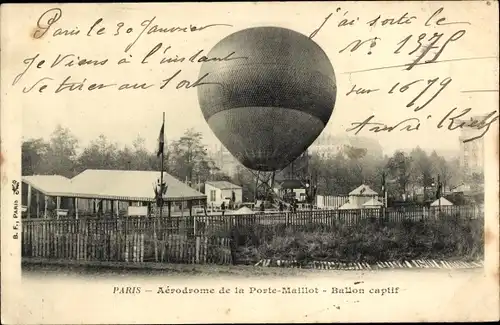 Paris 30 Janvier
Je viens à l'instant
de tirer au sort
j'ai sorti le
N° 1375
sur 1679
André
PARIS - Aérodrome de la Porte-Maillot - Ballon captif
B. F., PARIS